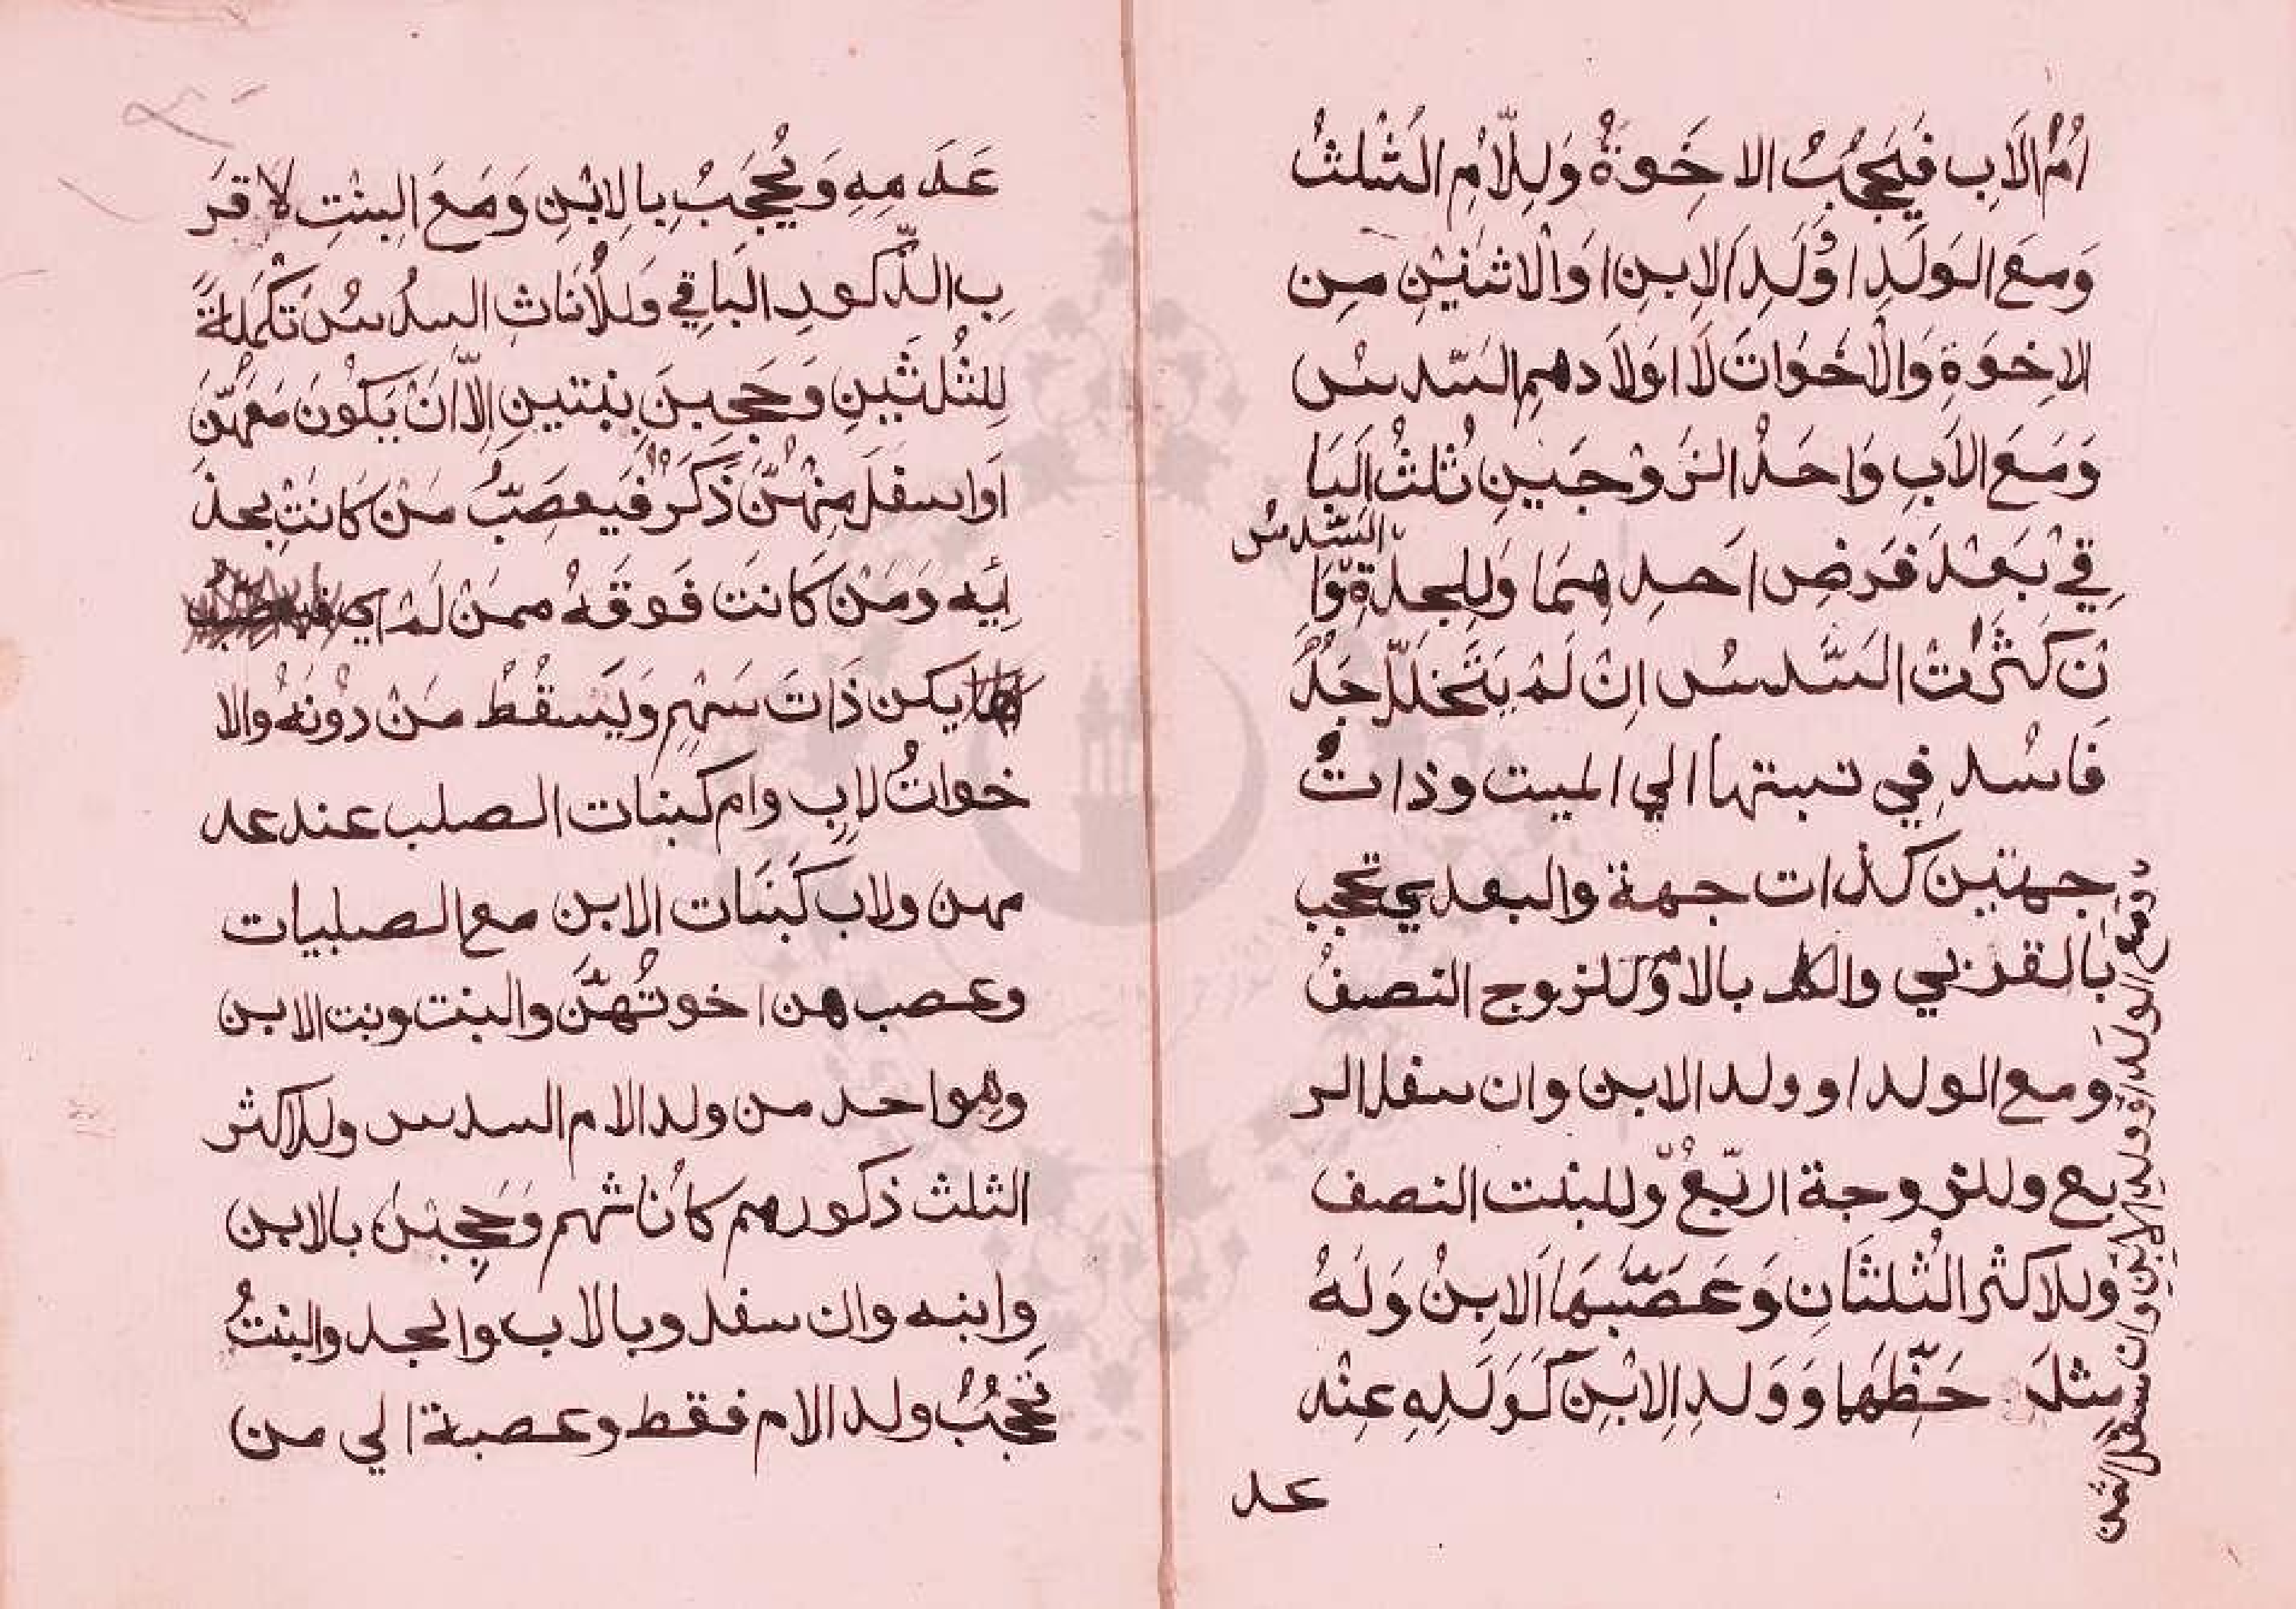 اُمُّ الاَبِ فَيَحجُبُ الاخَوةُ وَلِلّاُمِ الثُّلثُ
وَمعَ الوَلَدِ اَوْوَلَدِ الابِنِ اَوَالْاثنَيْنِ مِن
الاِخوَةِ وَالْاَخَوَاتَ لَا اَوْلَادهمِ السّدسُ
وَمَعَ الاَبِ وَاحَدُ الزَوْجَينِ ثُلثُ الَبَا
قِيْ بَعْدَ فَرَضِ اَحدِهِمَا وَلِلجدةِ السّدسُ وَّاِ
نْ كَثُرَتْ السَّدسُ اِنْ لَمْ يَتَخَلَلّ جَدُّ
فَاسُد فِي نسبتها الي الميت وذاتُ
جهتين كذات جهة والبعدي تحجب
بالقربي والكل بالام وّللزوج النصفُ
ومع الولد او ولد الابن وان سفل الر
بع وللزوجة الرّبعُ وّللبنت النصف
وللاكثر الثُلثَانِ وَعَصّبَهَا اَلابِنُ وَلَهُ
مِثلَ حَظِّهَا وَوَلدِ الِابْنِ كَوَلَدِهِ عِنْد
عد
ومع الولد او ولدِ الابْنِ وان سفل الثمن
عَدَمِهِ وَيُحْجَبُ بِالِابْنِ وَمَعَ البِنْتِ لاقرَ
بِ الذّكورِ البَاقِي وَلِلْاُنَاثِ السدُسُ تَكْمِلَةً
لِلثُلثَينِ وَحَجِبنَ بِبنتينِ اِلّا اَنْ يَكُونَ مَعَهُنَّ
اَوَ اسفلَ مِنْهُنَّ ذَكَرٌ فَيعصِبُّ مَنْ كَانتْ بحذ
ائِيه وَمَنْ كَانت فَوقَهُ ممنْ لَمْ
يكن ذَاتَ سَهْمٍ وَيَسْقُطْ مَنْ دُوْنهُ والا
خواتُ لِابٍ وام كبنات الصلب عند عد
مهن ولاب كَبَنَات الابن مع الصلبيات
وعصبهن اخوتُهنَّ والبنت وبنت الابن
وهواحد من ولد الام السدس وللاكثر
الثلث ذكورهم كاُناثهم وَحَجِبْنَ بالابن
وابنه وان سفل وبالاب والجد والبنتُ
تَحْجبُ ولد الام فقط وعصبة الي من